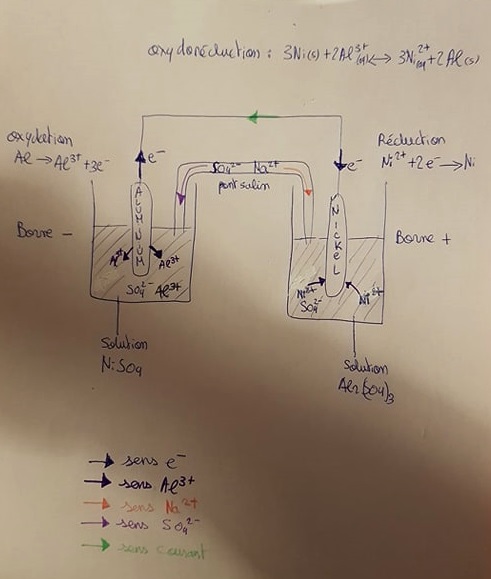 oxydoréduction : 3Ni(s) + 2Al³⁺(aq) <-> 3Ni²⁺(aq) + 2Al(s)
oxydation
Al → Al³⁺ + 3e⁻
Réduction
Ni²⁺ + 2e⁻ → Ni
e⁻
e⁻
SO₄²⁻ Na²⁺
pont salin
Borne -
Borne +
ALUMINIUM
NICKEL
Al³⁺
Al³⁺
SO₄²⁻ Al³⁺
Ni²⁺
SO₄²⁻
Ni²⁺
Solution
NiSO₄
Solution
Al₂(SO₄)₃
→ sens e⁻
→ sens Al³⁺
→ sens Na²⁺
→ sens SO₄²⁻
→ sens courant